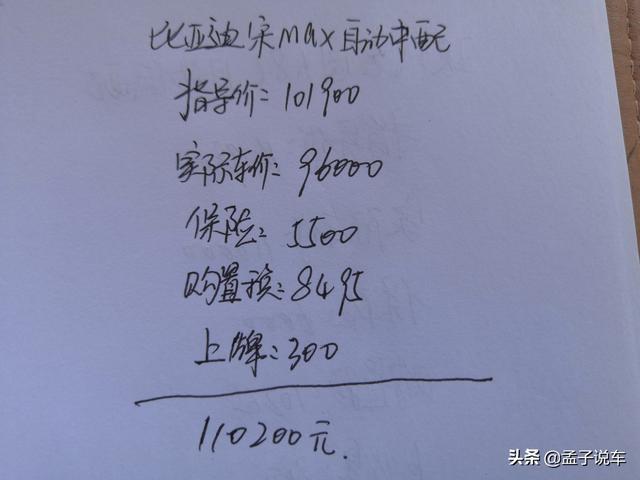 比亚迪宋max自动中配
指导价:101900
实际车价:96000
保险:5500
购置税:8495
上牌:300
110200元.
头条 @孟子说车